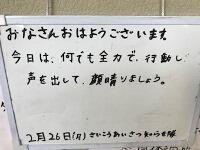 みなさんおはようございます。
今日は、何でも全力で、行動し
声を出して、顔晴りましょう。
2月26日(月)さいこうあいさつ